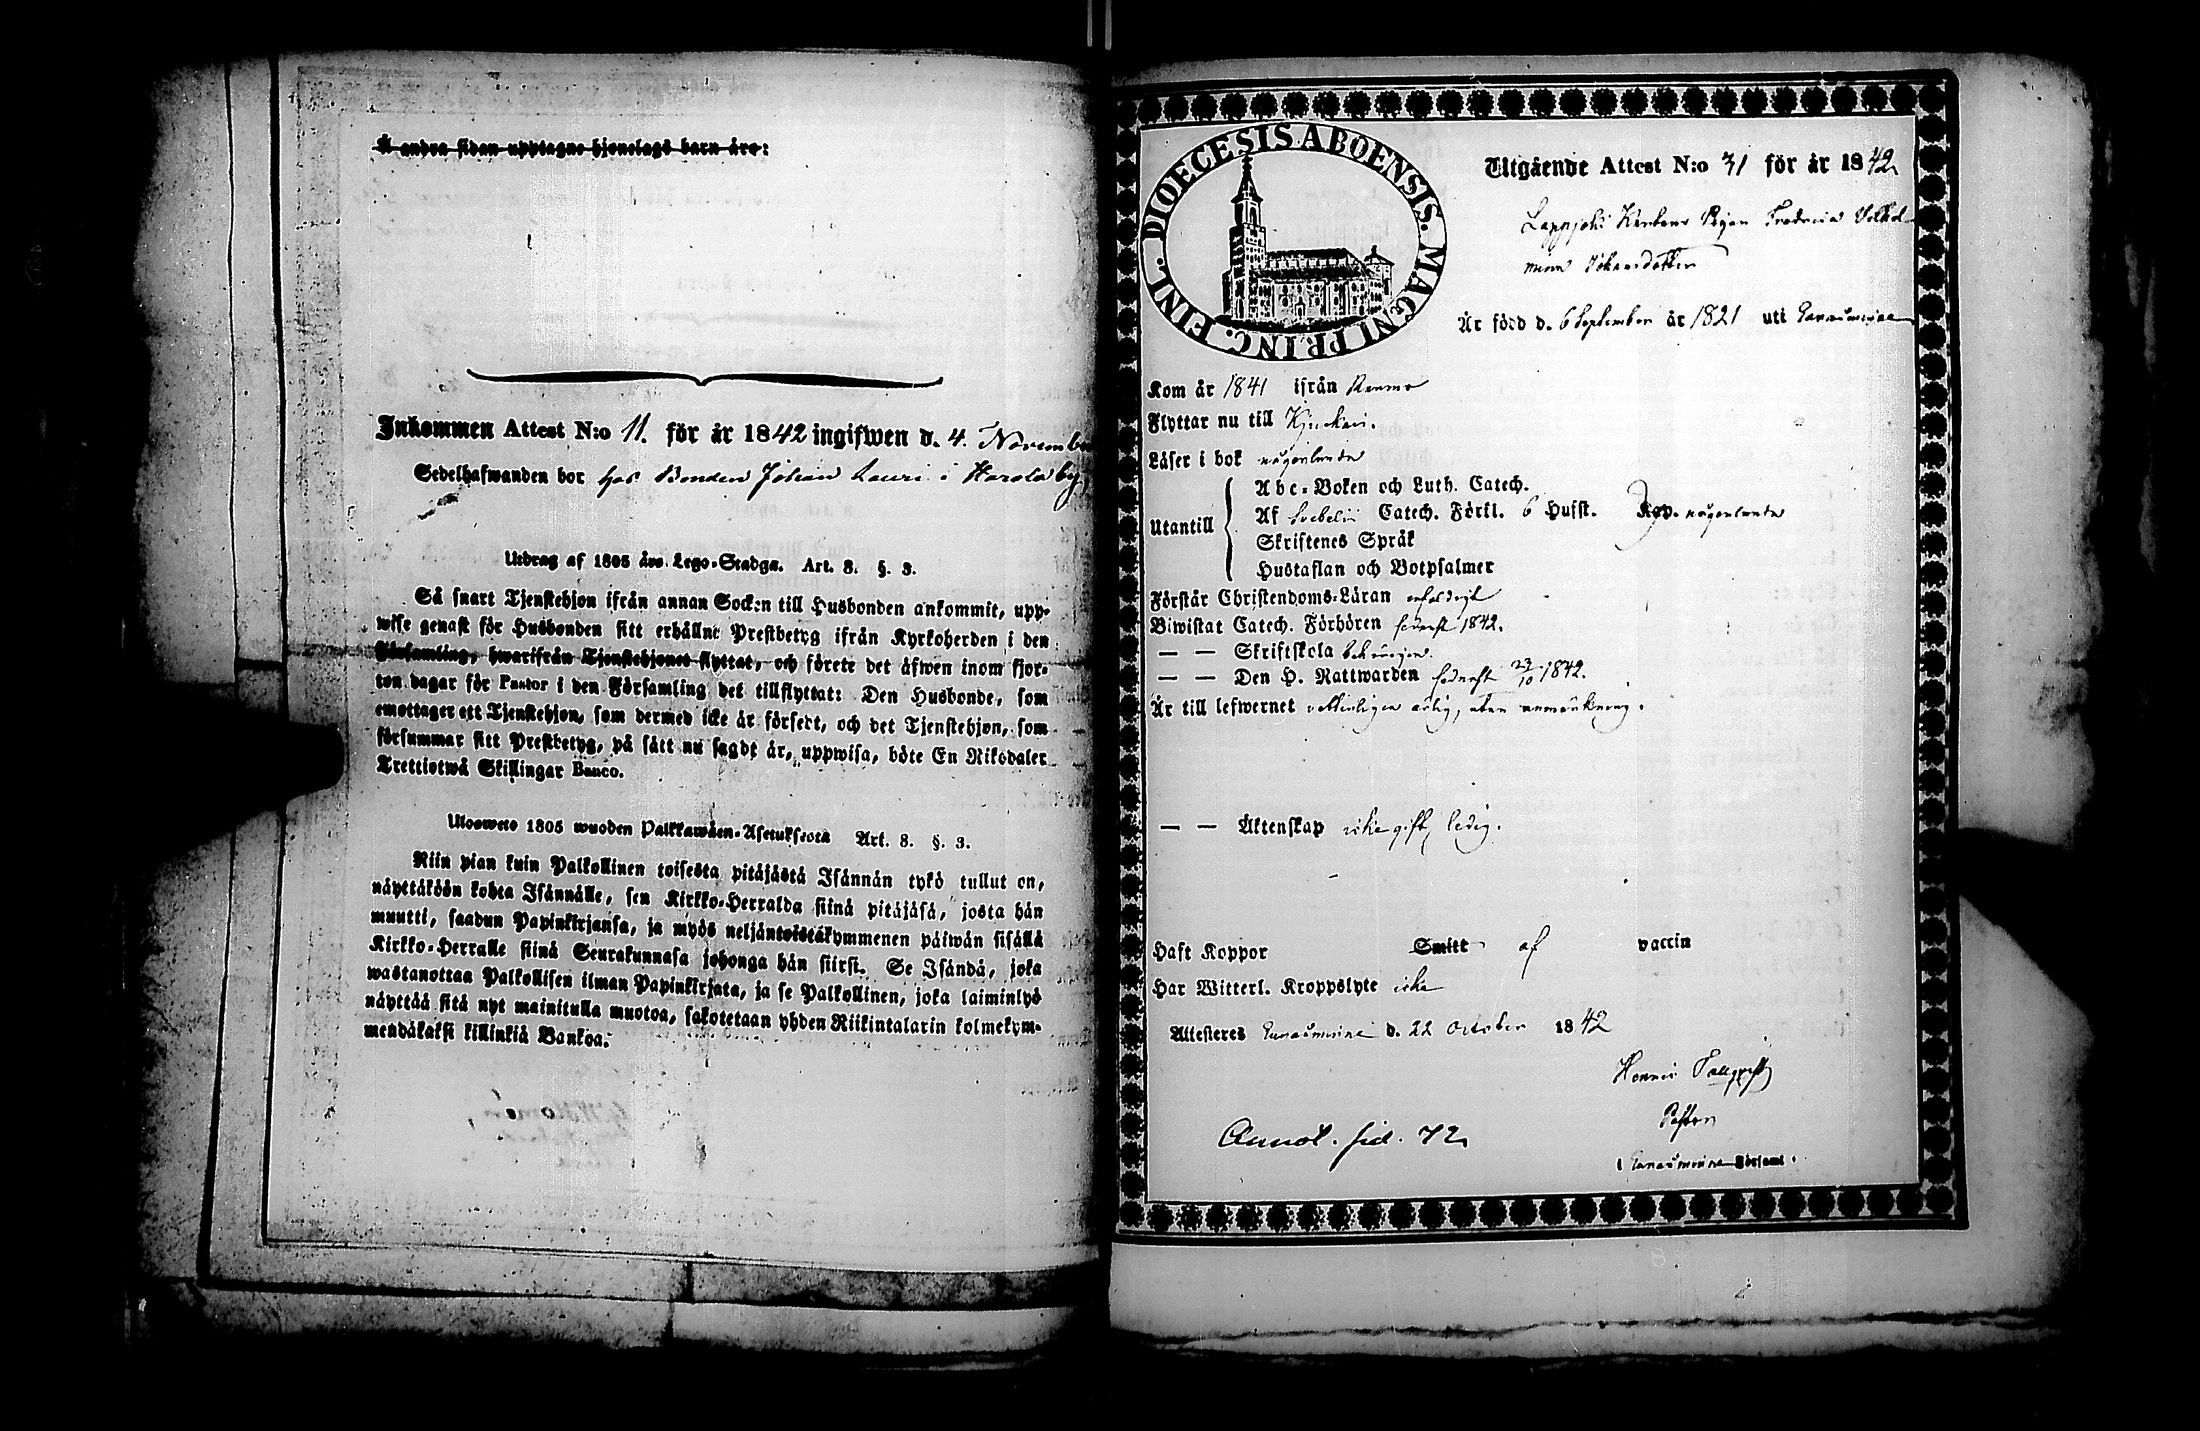 Å andra sidan upptagne hjonelags barn äro:
Inkommen Attest N:o 11. för år 1842 ingifwen d. 4. November
Sedelhafwanden bor hos Bonden Johan Lauri i Harola by
Utdrag af 1805 års Lego-Stadga. Art. 8. §. 3.
Så snart Tjenstehjon ifrån annan Socken till Husbonden ankommit, upp-
wise genast för Husbonden sitt erhållne Prestbetyg ifrån Kyrkoherden i den
Församling, hwarifrån Tjenstehjonet flyttat, och förete det äfwen inom fjor-
ton dagar för Pastor i den Församling det tillflyttat: Den Husbonde, som
emottager ett Tjenstehjon, som dermed icke är försedt, och det Tjenstehjon, som
försummar sitt Prestbetyg, på sätt nu sagdt är, uppwisa, böte En Riksdaler
Trettiotwå Skillingar Banco.
Ulosweto 1805 wuoden Palkkawäen-Asetuksesta Art. 8. §. 3.
Niin pian kuin Palkollinen toisesta pitäjästä Isännän tykö tullut on,
näyttäköön kohta Isännälle, sen Kirkko-Herralda siinä pitäjäsä, josta hän
muutti, saadun Papinkirjansa, ja myös neljäntoistakymmenen päiwän sisällä
Kirkko-Herralle siinä Seurakunnasa johonga hän siirsi. Se Isändä, joka
wastanottaa Palkollisen ilman Papinkirjata, ja se Palkollinen, joka laiminlyö
näyttää sitä nyt mainitulla muotoa, sakotetaan yhden Riikintalarin kolmekym-
mendäkaksi killinkiä Bankoa.
DIOECESIS ABOENSIS. MAGNI PRINC. FINL.
Utgående Attest N:o 31 för år 1842
Lappjoki Pigan Fredrica Vilhel-
mina Johansdotter
Är född d. 6 September år 1821 uti Euraåminne
Kom år 1841 ifrån Raumo
Flyttar nu till
Läser i bok någorlunda
Utantill
Abc-Boken och Luth. Catech.
Af Svebelii Catech. Förkl. 6 Hufst. någorlunda
Skriftenes Språk
Hustaflan och Botpsalmer
Förstår Christendoms-Läran enfaldigt
Biwistat Catech. Förhören senast 1842.
— — Skriftskola behörigen.
— — Den H. Nattwarden senast 23/10 1842.
Är till lefwernet veterligen ärlig, utan anmärkning.
— — Äktenskap icke gift, ledig.
Haft Koppor Smitt af vaccin
Har Witterl. Kroppslyte icke
Attesteres Euraåminne d. 22 October 1842
Henric Fallqvist
Pastor
i Euraåminne Församl.
Annot. sid. 72